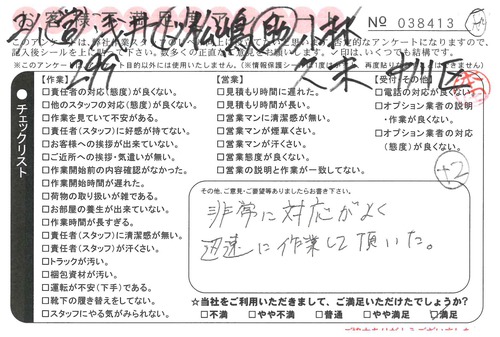 № 038413
このアンケート
※このアンケート
記入後シールを
【作業】
□責任者の対応(態度)が良くない。
□他のスタッフの対応(態度)が良くない。
□作業を見ていて不安がある。
□責任者(スタッフ)に好感が持てない。
□お客様への挨拶が出来ていない。
□ご近所への挨拶・気遣いが無い。
□作業開始前の内容確認がなかった。
□作業開始時間が遅れた。
□荷物の取り扱いが雑である。
□お部屋の養生が出来ていない。
□作業時間が長すぎる。
□責任者(スタッフ)に清潔感が無い。
□責任者(スタッフ)が汗くさい。
□トラックが汚い。
□梱包資材が汚い。
□運転が不安(下手)である。
□靴下の履き替えをしてない。
□スタッフにやる気がみられない。
【営業】
□見積もり時間に遅れた。
□見積もり時間が長い。
□営業マンに清潔感が無い。
□営業マンが煙草くさい。
□営業マンが汗くさい。
□営業態度が良くない。
□営業の説明と作業が一致してない。
【受付・その他】
□電話の対応が良くない。
□オプション業者の説明
・作業が良くない。
□オプション業者の対応
(態度)が良くない。
+2
チェックリスト
その他、ご意見・ご要望等ありましたらお書き下さい。
非常に対応がよく
迅速に作業して頂いた。
☆当社をご利用いただきまして、ご満足いただけたでしょうか?
□不満 □やや不満 □普通 □やや満足 ☑満足